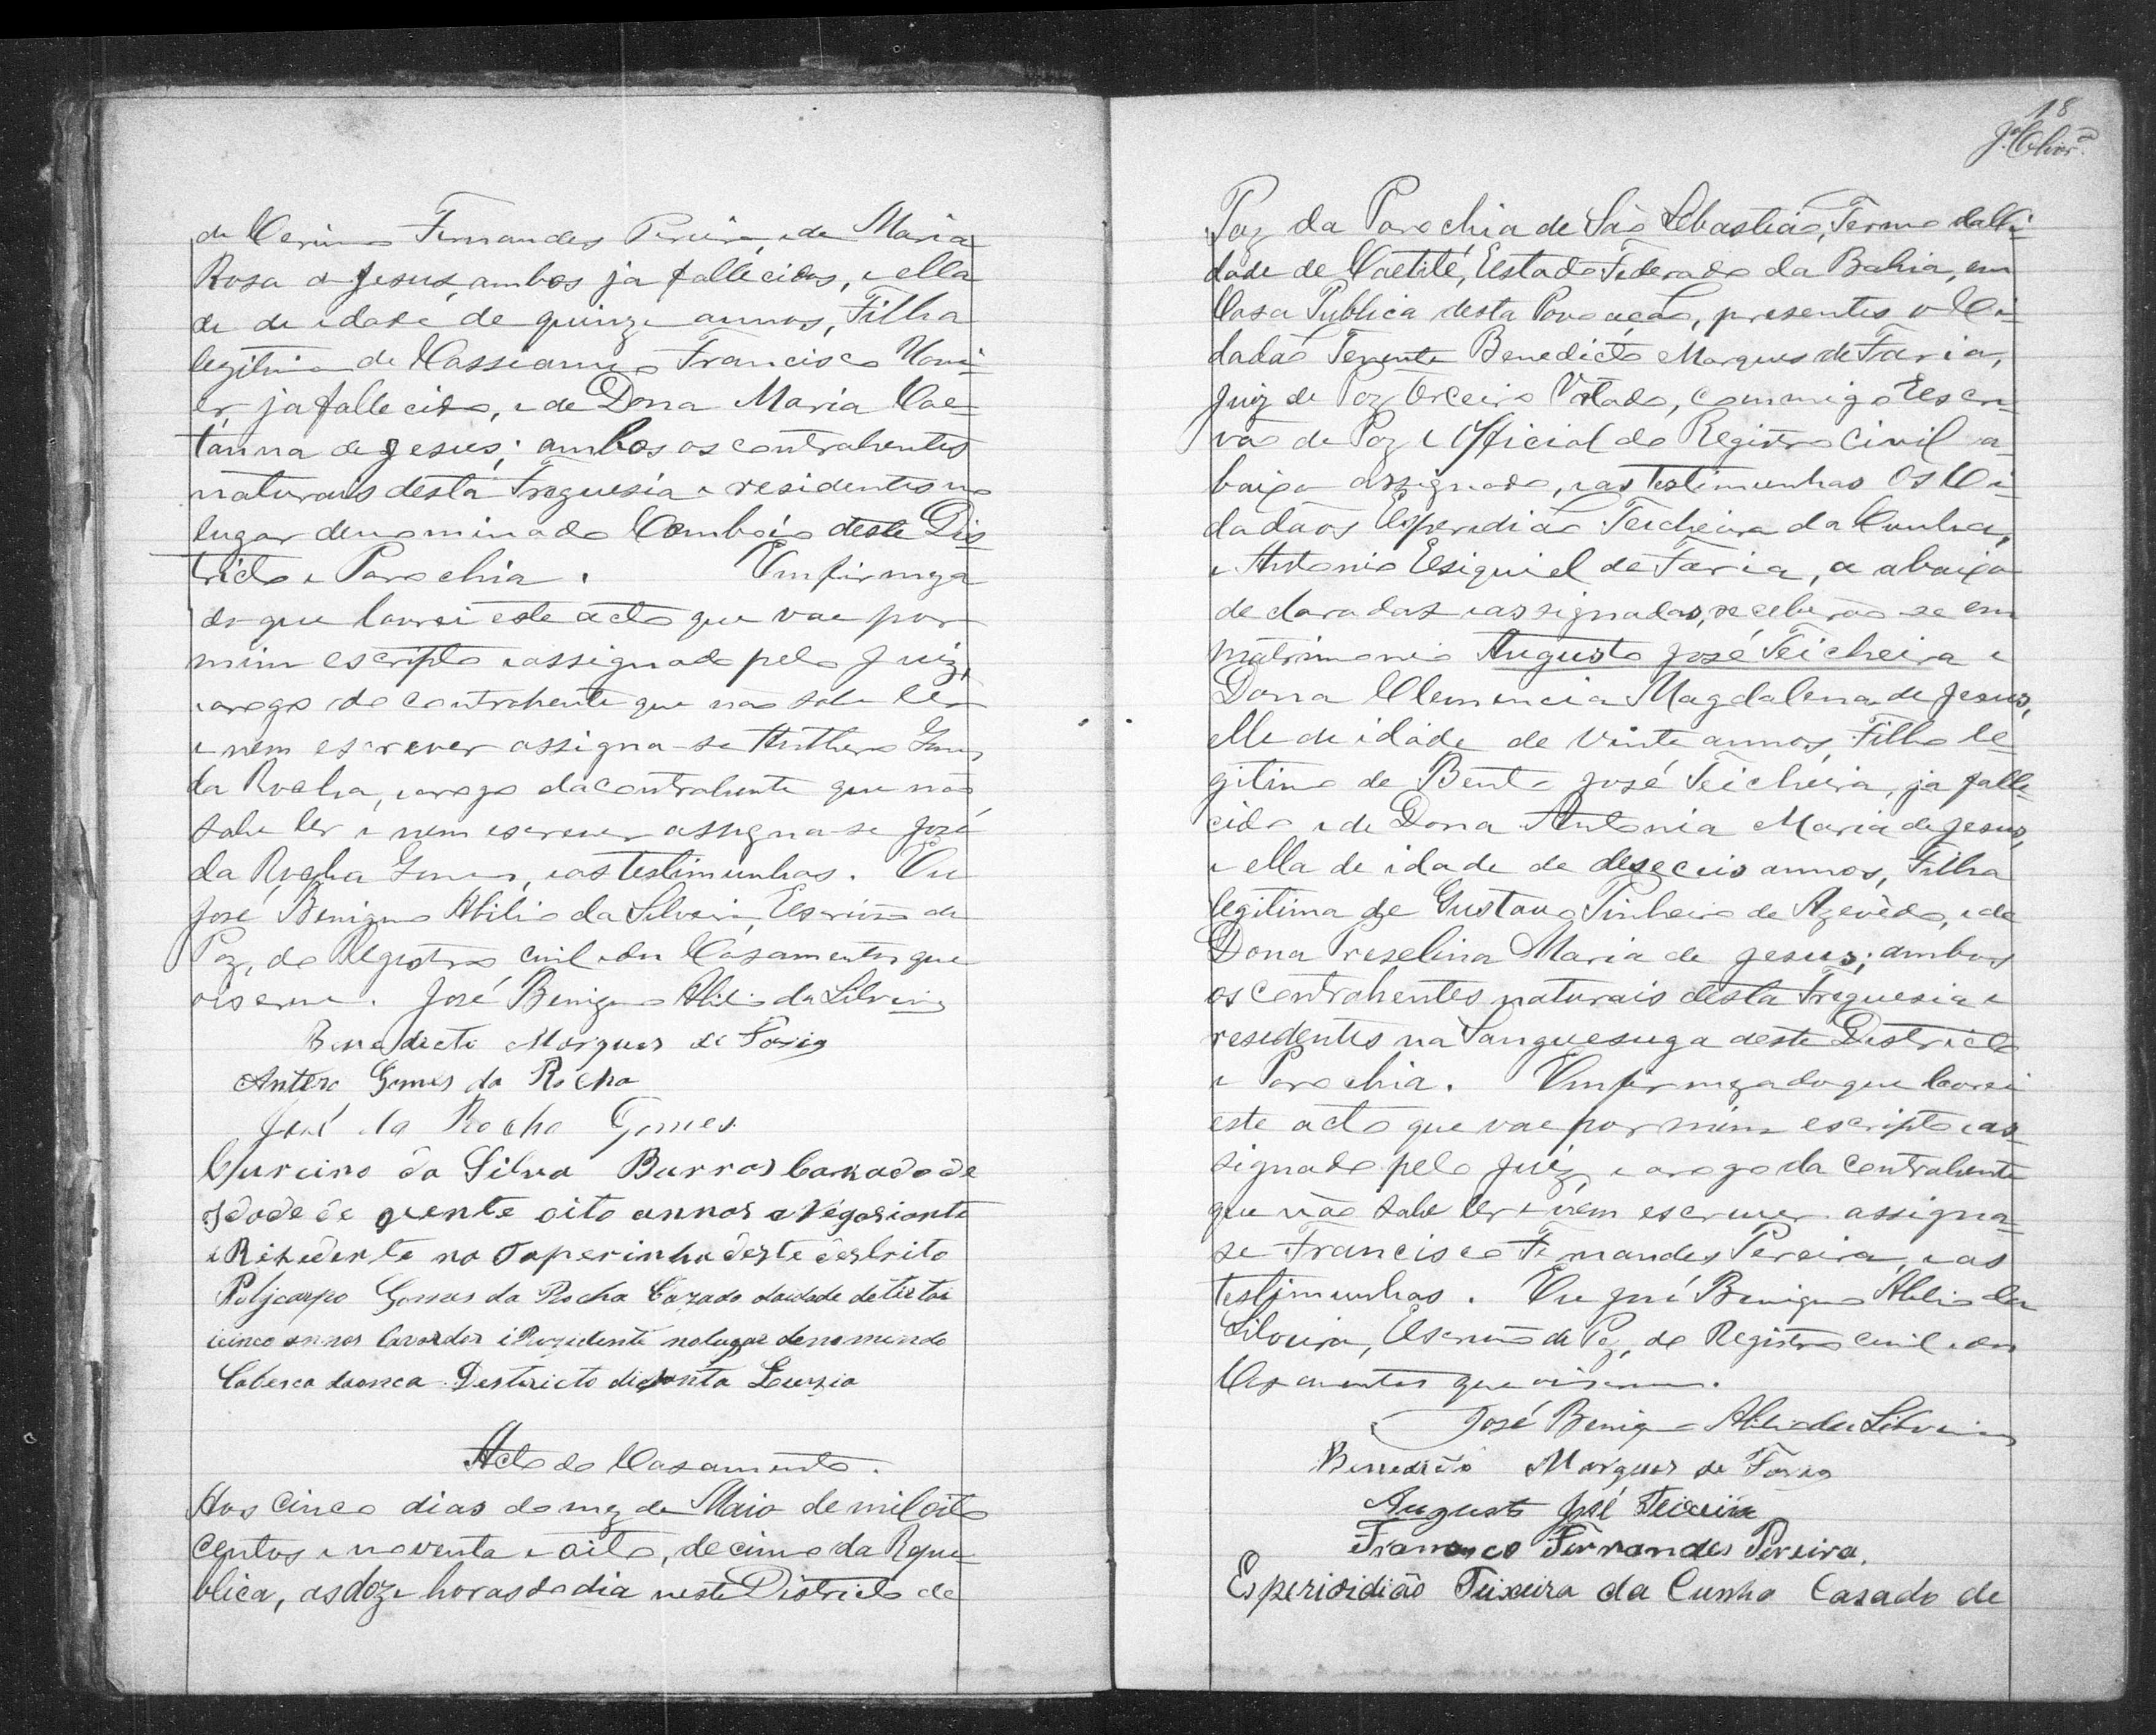 de Cerino Fernandes Pereira, e de Maria
Rosa de Jesus, ambos ja fallecidos, e ella
de de idade de quinze annos, Filha
legitima de Cassiano Francisco Xavi-
er ja fallecido, e de Dona Maria Cae-
tanna de Jesus; ambos os contrahentes
naturaes desta Freguesia e residentes no
lugar denominado deste Dis-
tricto e Parochia. Em firmeza
do que lavrei este acto que vae por
mim escripto e assignado pelo Juiz,
e arogo do contrahente que não sabe ler
e nem escrever assigna-se Anthero Gomes
da Rocha, e arogo da contrahente que não
sabe ler e nem escrever assigna-se José
da Rocha Gomes, e as testimunhas. Eu
José Benigno Abilio da Silveira, Escrivão de
Paz, do Registro civil e dos Casamentos que
o iscrevi. José Benigno Abilio da Silveira
Benedicto Marques de Faria
Antero Gomes da Rocha
José da Rocha Gomes
Curcino da Silva Barros Cazado de
Idade de qrenta oito annos e Negosiante
e Rizedente na Taperinha deste destrito
Polycarpo Gomes da Rocha Cazado daidade detrinta
cinco annos lavrador i Rezidente nolugar denomindo
Cabesca daonca Destricto de Santa Luzia
Acto do Casamento.
Aos cinco dias do mez de Maio de mil oito
centos e noventa e oito, decimo da Repu-
blica, as doze horas do dia neste Districto de
18
Paz da Parochia de São Sebastião, Termo da Ci-
dade de Caetité, Estado Federado da Bahia, em
Casa Publica desta Povoação, presentes o Ci-
dadão Tenente Benedicto Marques de Faria,
Juiz de Paz terceiro Votado, commigo Escri-
vão de Paz e Official do Registro Civil a-
baixo assignado, e as testimunhas Os Ci-
dadãos Esperidião Teicheira da Cunha,
e Antonio Esiquiel de Faria, a abaixo
declaradas e assignadas, receberão-se em
matrimonio Augusto José Teicheira e
Dona Clemencia Magdalena de Jesus,
elle de idade de vinte annos, Filho le-
gitimo de Bento José Teicheira, ja falle-
cido e de Dona Antonia Maria de Jesus,
e ella de idade de deseceis annos, Filha
legitima de Gustavo Pinheiro de Azevêdo, e de
Dona Preselina Maria de Jesus; ambos
os contrahentes naturais desta Freguesia e
residentes na Sanguesuga deste Districto
e Parochia. Em firmeza do que lavrei
este acto que vae por mim escripto e as-
signado pelo Juiz, e arogo da contrahente
que não sabe ler e nem escrever assigna-
se Francisco Fernandes Pereira, e as
testimunhas. Eu José Benigno Abilio da
Silveira, Escrivão de Paz, do Registro civil e dos
Casamentos que oiscrevi.
José Benigno Abilio da Silveira
Benedicto Marques de Faria
Augusto José Teixeira
Francisco Fernandes Pereira.
Esperididião Teixeira da Cunha Casado de